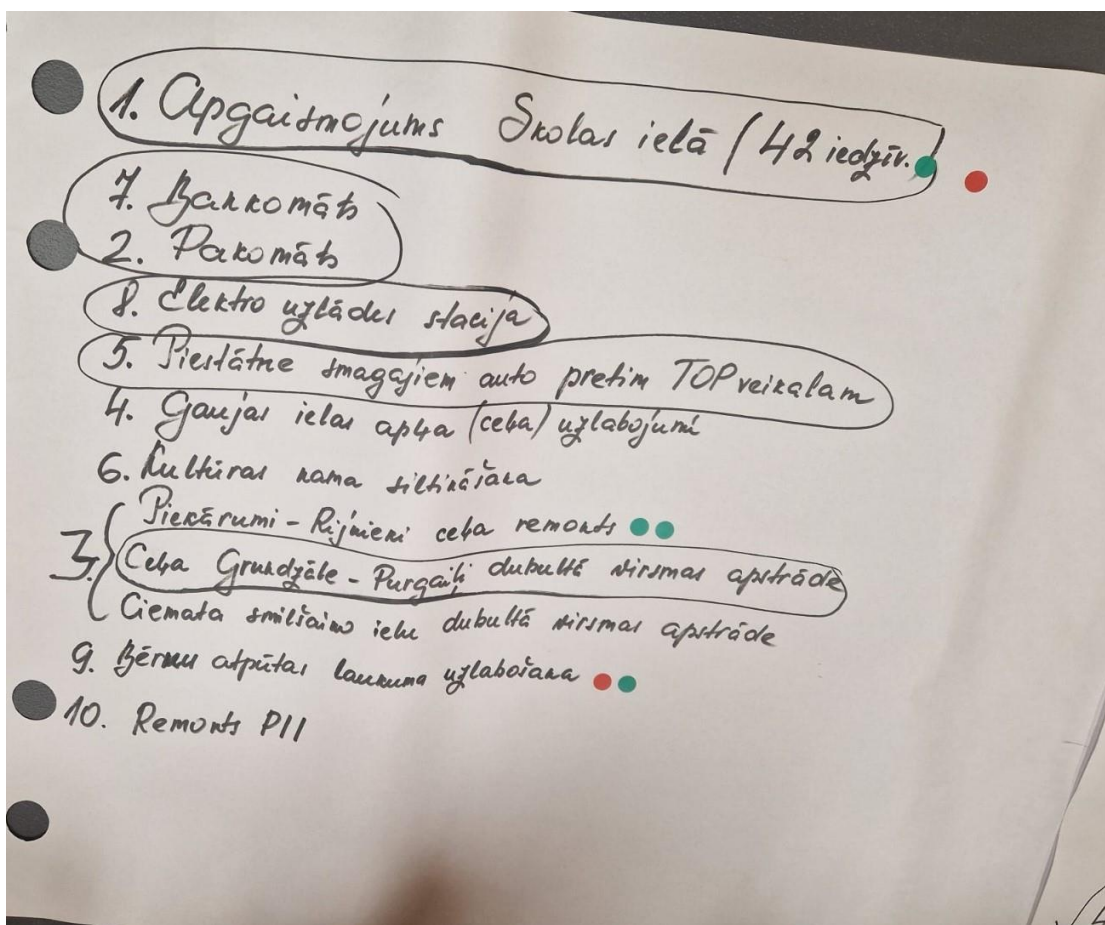 1. Apgaismojums Skolas ielā (42 iedzīv.)
7. Bankomāts
2. Pakomāts
8. Elektro uzlādes stacija
5. Piestātne smagajiem auto pretim TOP veikalam
4. Gaujas ielas apļa (ceļa) uzlabojumi
6. Kultūras nama siltināšana
Piekārumi - Rijnieki ceļa remonts
3. Ceļa Grundzāle - Purgaiļi dubultā virsmas apstrāde
Ciemata smilšaino ielu dubultā virsmas apstrāde
9. Bērnu atpūtas laukuma uzlabošana
10. Remonts PII